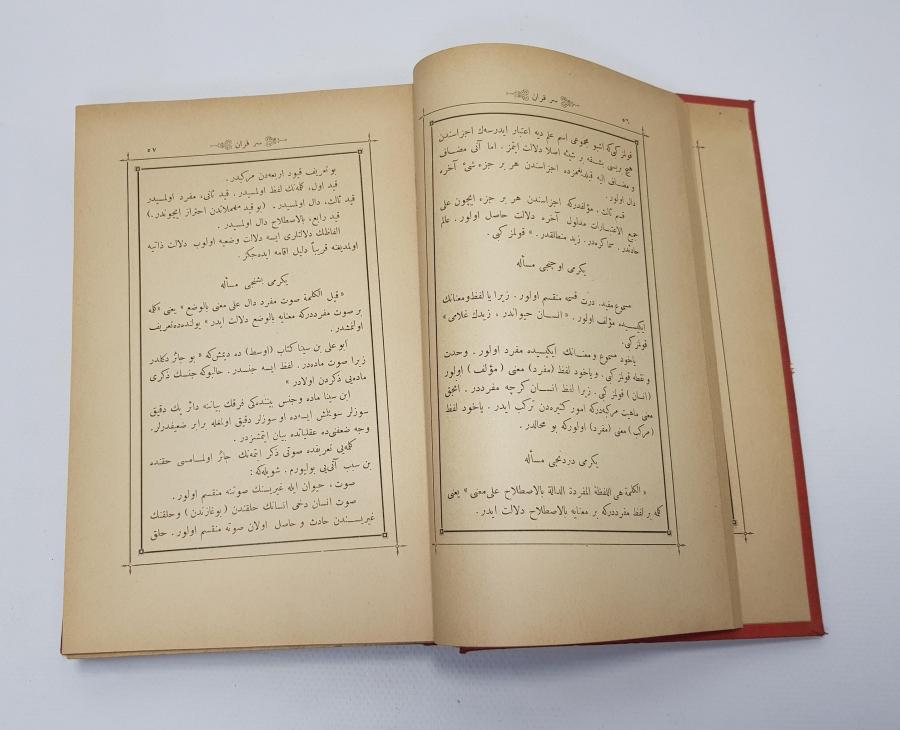 سر قرآن
٥٦
قولمز كبى كه اشبو مجموعى اسم علم ديه اعتبار ايدرسه‌ك اجزاسندن
هيچ بريسى بشقه بر شيئه اصلا دلالت ايتمز. اما آنى مضاف
و مضاف اليه قيلديغمزده اجزاسندن هر بر جزء شئ آخره
دال اولور.
قسم ثالث، مؤلفدركه اجزاسندن هر بر جزء ايچون على
جميع الاعتبارات مدلول آخره دلالت حاصل اولور. عالم
حادثدر. سما كره‌در. زيد منطلقدر. » قولمز كبى.
يكرمى اوچنجى مسأله
مسموع مفيد. درت قسمه منقسم اولور. زيرا يا لفظ ومعنانك
ايكيسيده مؤلف اولور. « انسان حيواندر، زيدك غلامى »
قولمز كبى.
ياخود مسموع ومعنانك ايكيسيده مفرد اولور. وحدت
و نقطه قولمز كبى. وياخود لفظ (مفرد) معنى (مؤلف) اولور
(انسان) قولمز كبى. زيرا لفظ انسان كرچه مفرددر. انجق
معنى ماهيت مركبه‌دركه امور كثيره‌دن تركب ايدر. ياخود لفظ
(مركب) معنى (مفرد) اولوركه بو محالدر.
يكرمى دردنجى مسأله
« الكلمة هى اللفظة المفردة الدالة بالاصطلاح على معنى » يعنى
كلمه بر لفظ مفرددركه بر معنايه بالاصطلاح دلالت ايدر.
سر قرآن
٥٧
بو تعريف قيود اربعه‌دن مركبدر.
قيد اول، كلمه‌نك لفظ اولمسيدر. قيد ثانى، مفرد اولمسيدر
قيد ثالث، دال اولمسيدر. (بو قيد مهملاتدن احتراز ايچوندر.)
قيد رابع، بالاصطلاح دال اولمسيدر.
الفاظك دلالتلرى ايسه دلالت وضعيه اولوب دلالت ذاتيه
اولمديغنه قريباً دليل اقامه ايده‌جكز.
يكرمى بشنجى مسأله
« قيل الكلمة صوت مفرد دال على معنى بالوضع » يعنى « كلمه
بر صوت مفرددركه معنايه بالوضع دلالت ايدر » يولنده‌ده تعريف
اولنمشدر.
ابو على بن سينا كتاب (اوسط) ده ديمش‌كه « بو جائز دكلدر
زيرا صوت ماده‌در. لفظ ايسه جنسدر. حالبوكه جنسك ذكرى
ماده‌يى ذكردن اولادر »
ابن سينا ماده وجنس بيننده‌كى فرقك بياننه دائر پك دقيق
سوزلر سويلمش ايسه‌ده او سوزلر دقيق اولمغله برابر ضعيفدرلر.
وجه ضعفنى‌ده عقلياتده بيان ايتمشزدر.
كلمه‌يى تعريفده صوتى ذكر ايتمه‌نك جائز اولمامسى حقنده
بن سبب آتى‌يى بوليورم. شويله‌كه:
صوت، حيوان ايله غيريسنك صوتنه منقسم اولور.
صوت انسان دخى انسانك حلقندن (بوغازندن) وحلقنك
غيريسندن حادث و حاصل اولان صوته منقسم اولور. حلق